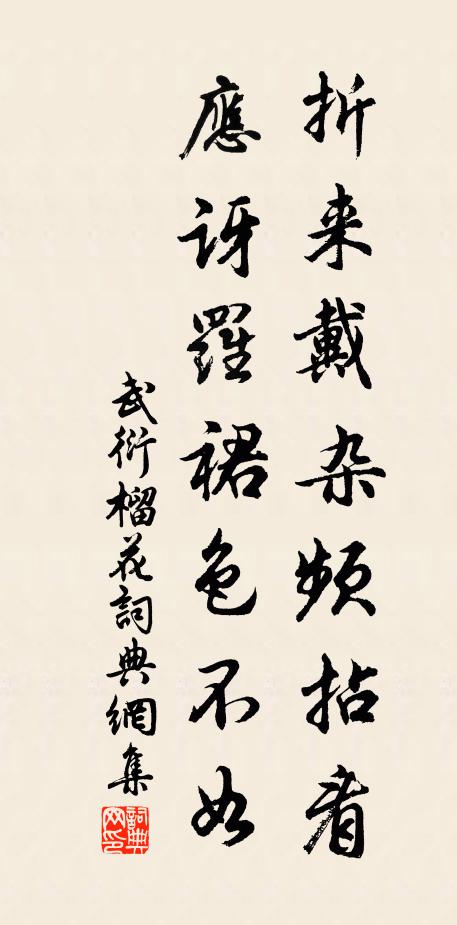 折来戴杂頻拈看
應訝羅裙色不如
武衍榴花詞典網集
詞典
网印